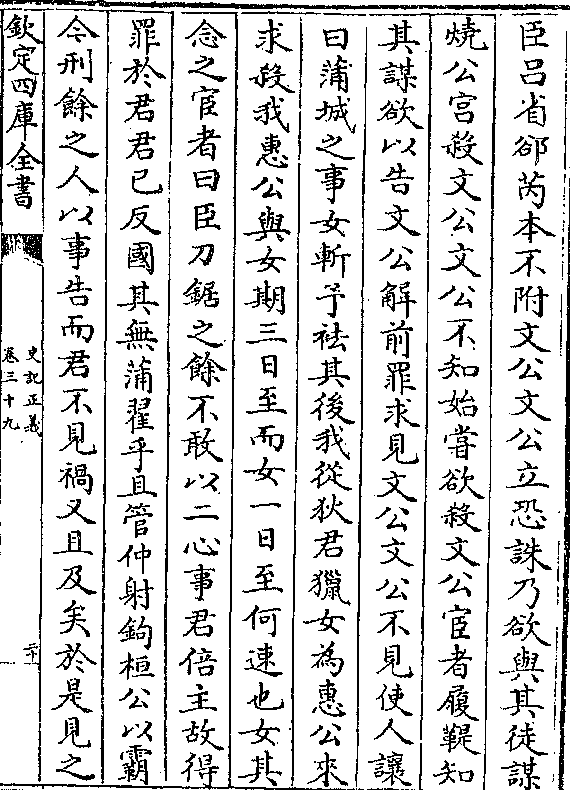 臣呂省郤芮本不附文公文公立恐誅乃欲與其徒謀
燒公宮殺文公文公不知始嘗欲殺文公宦者履鞮知
其謀欲以告文公解前罪求見文公文公不見使人讓
曰蒲城之事女斬予袪其後我從狄君獵女為惠公來
求殺我惠公與女期三日至而女一日至何速也女其
念之宦者曰臣刀鋸之餘不敢以二心事君倍主故得
罪於君君已反國其無蒲翟乎且管仲射鉤桓公以霸
今刑餘之人以事告而君不見禍又且及矣於是見之
欽定四庫全書
史記正義
卷三十九
二十